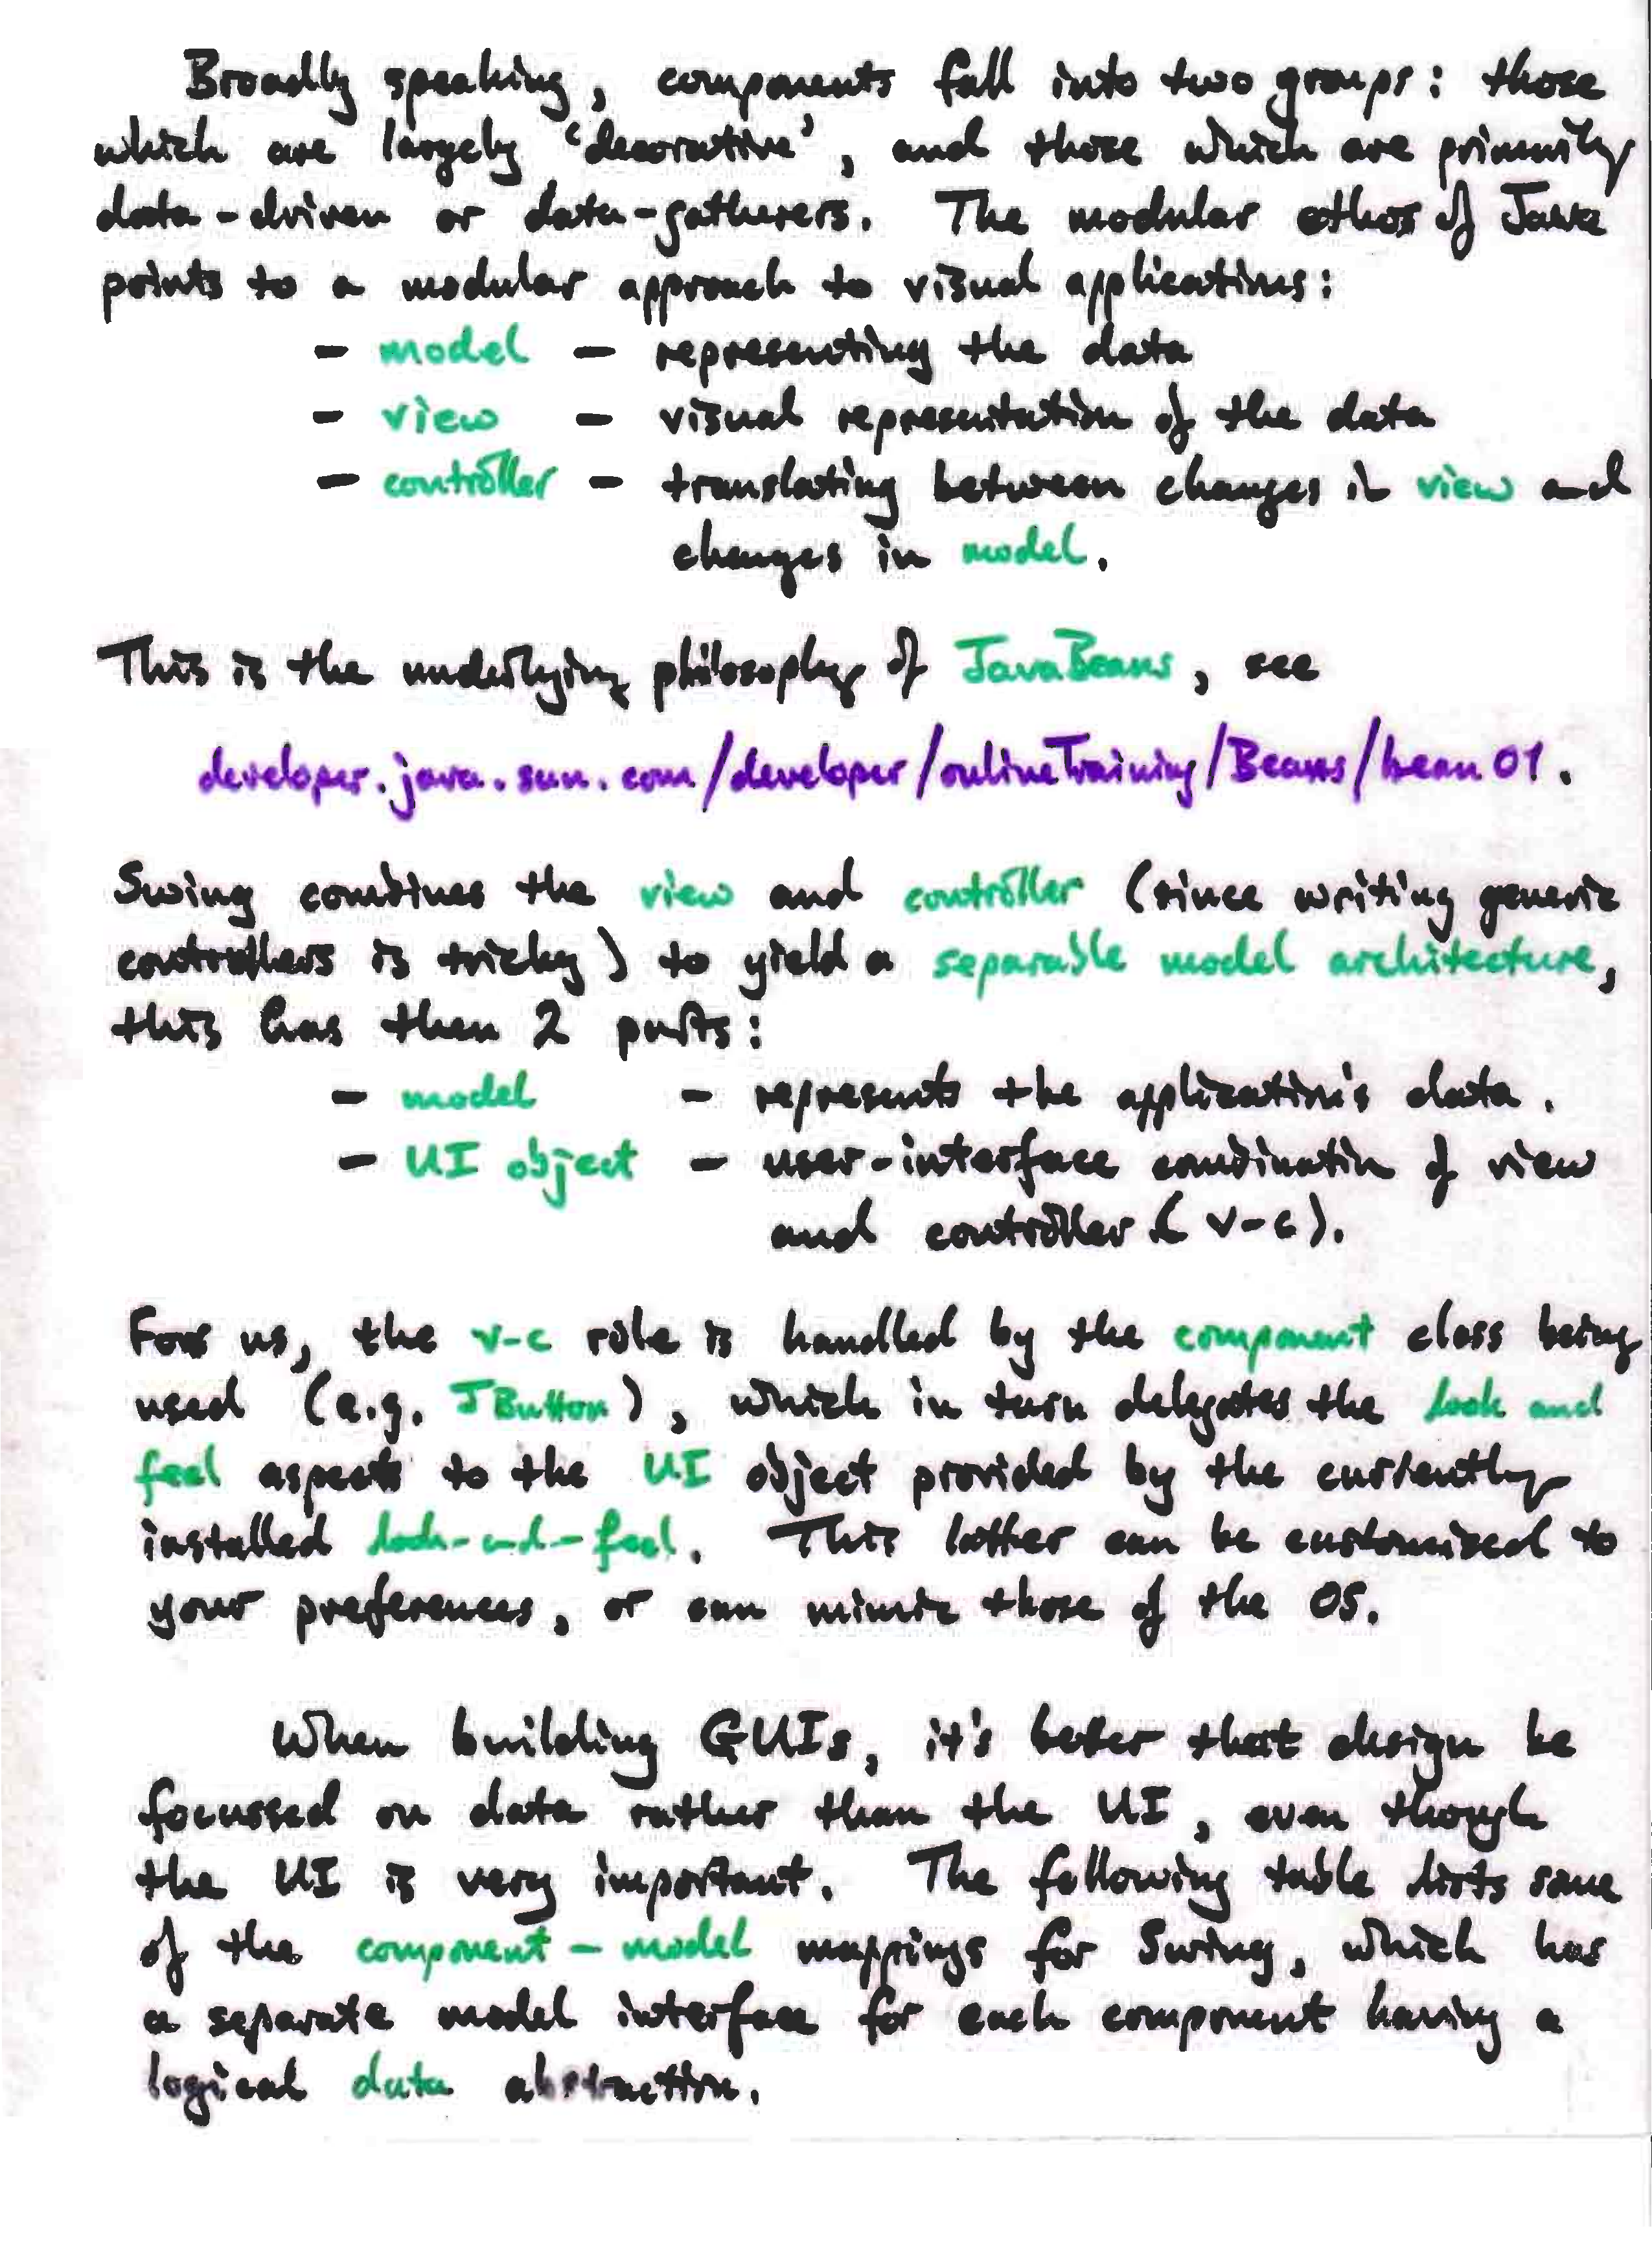 Broadly speaking, components fall into two groups: those
which are largely 'decorative', and those which are primarily
data-driven or data-gatherers. The modular ethos of Java
points to a modular approach to visual applications:
- model - representing the data
- view - visual representation of the data
- controller - translating between changes in view and
changes in model.
This is the underlying philosophy of JavaBeans, see
developer.java.sun.com/developer/onlineTraining/Beans/bean01.
Swing combines the view and controller (since writing generic
controllers is tricky) to yield a separable model architecture,
this has then 2 parts:
- model - represents the application's data.
- UI object - user-interface combination of view
and controller (v-c).
For us, the v-c role is handled by the component class being
used (e.g. JButton), which in turn delegates the look and
feel aspects to the UI object provided by the currently
installed look-and-feel. This latter can be customised to
your preferences, or can mimic those of the OS.
When building GUIs, it's better that design be
focussed on data rather than the UI, even though
the UI is very important. The following table lists some
of the component - model mappings for Swing, which has
a separate model interface for each component having a
logical data abstraction.